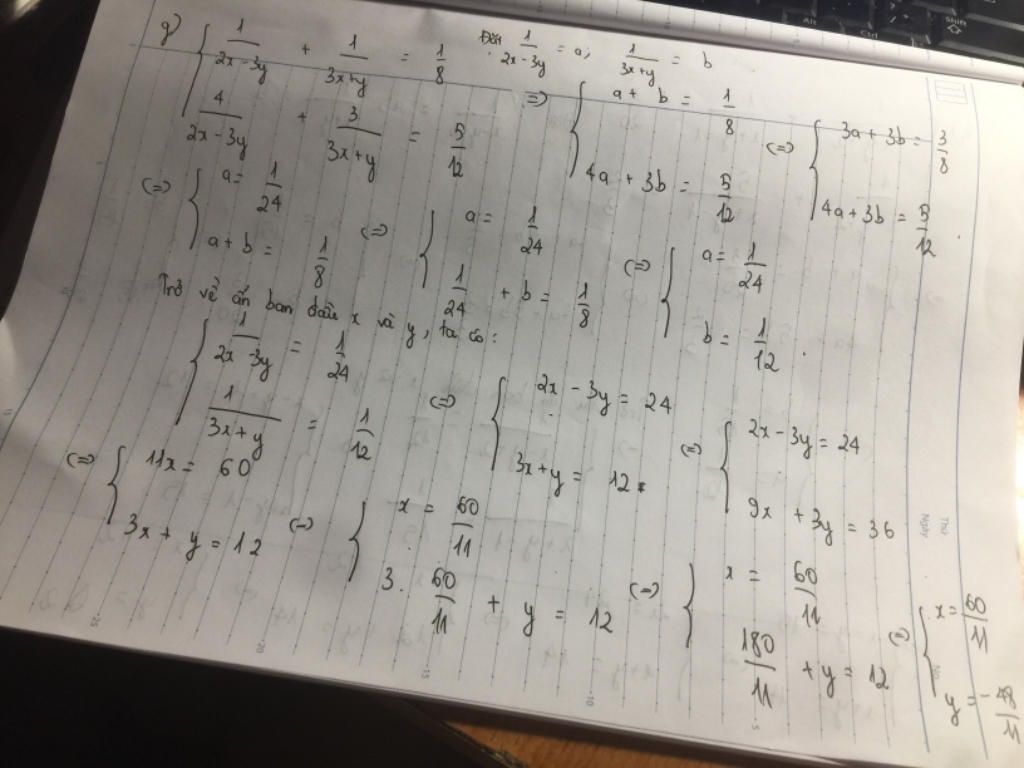 g) { 1/(2x-3y) + 1/(3x+y) = 1/8
4/(2x-3y) + 3/(3x+y) = 5/12
Đặt 1/(2x-3y) = a; 1/(3x+y) = b
=> { a + b = 1/8
4a + 3b = 5/12
(=) { 3a + 3b = 3/8
4a + 3b = 5/12
(=) { a = 1/24
a + b = 1/8
(=) { a = 1/24
1/24 + b = 1/8
(=) { a = 1/24
b = 1/12.
Trở về ẩn ban đầu x và y, ta có:
{ 1/(2x-3y) = 1/24
1/(3x+y) = 1/12
(=) { 2x - 3y = 24
3x + y = 12
(=) { 2x - 3y = 24
9x + 3y = 36
(=) { 11x = 60
3x + y = 12
(=) { x = 60/11
3. 60/11 + y = 12
(=) { x = 60/11
180/11 + y = 12
(=) { x = 60/11
y = -48/11
Thứ
Ngày
No.
Alt
Ctrl